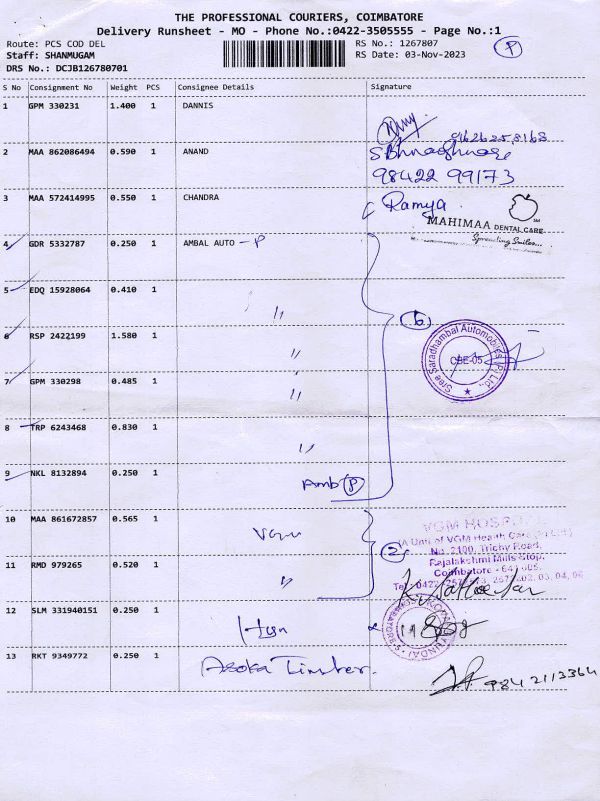 THE PROFESSIONAL COURIERS, COIMBATORE
Delivery Runsheet - MO - Phone No.:0422-3505555 - Page No.:1
Route: PCS COD DEL
RS No.: 1267807
P
Staff: SHANMUGAM
RS Date: 03-Nov-2023
DRS No.: DCJB126780701
S No Consignment No Weight PCS Consignee Details Signature
1 GPM 330231 1.400 1 DANNIS
2 MAA 862086494 0.590 1 ANAND
98422 99173
3 MAA 572414995 0.550 1 CHANDRA Ramya
MAHIMAA DENTAL CARE
Spreading Smiles...
4 GDR 5332787 0.250 1 AMBAL AUTO - P
5 EDQ 15928064 0.410 1 "
6
6 RSP 2422199 1.580 1 "
Sree Saradhambal Automobiles (P) Ltd.,
CBE-05
7 GPM 330298 0.485 1 "
8 TRP 6243468 0.830 1 "
9 NKL 8132894 0.250 1 Amb P
10 MAA 861672857 0.565 1 VGM
VGM HOSPITAL
(A Unit of VGM Health Care
No. 2100, Trichy Road,
Rajalakshmi Mills Stop,
Coimbatore - 641 005.
2
11 RMD 979265 0.520 1 "
12 SLM 331940151 0.250 1
13 RKT 9349772 0.250 1 Asoka Timber.
9842113364